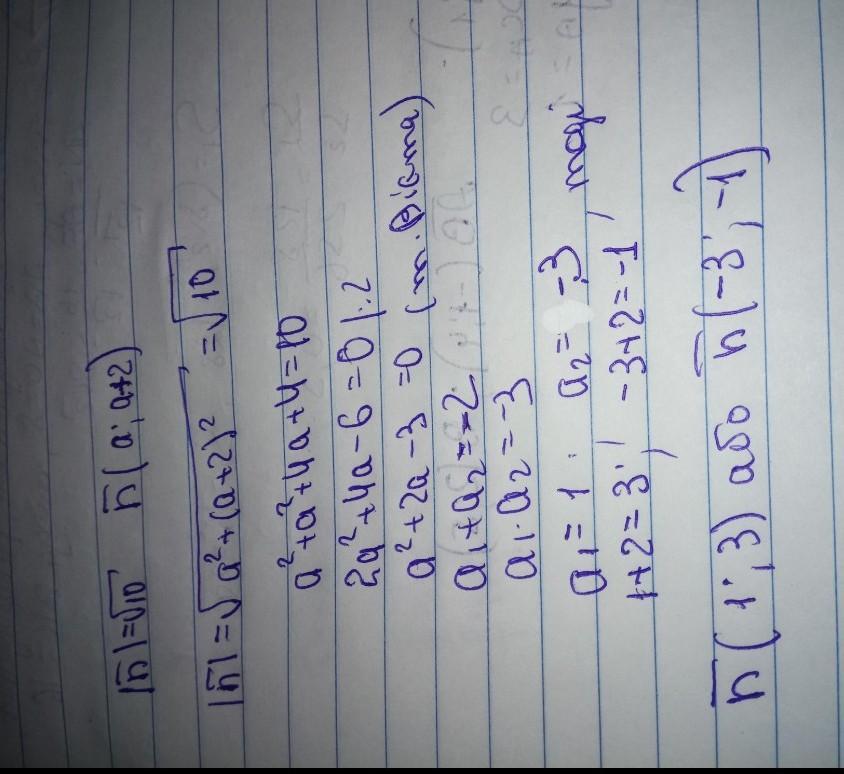 |n̅|=√10 n̅(a; a+2)
|n̅|=√a²+(a+2)² =√10
a²+a²+4a+4=10
2a²+4a-6=0 |:2
a²+2a-3=0 (т. Вієта)
a₁+a₂=-2
a₁·a₂=-3
a₁=1 a₂=-3, тоді
1+2=3; -3+2=-1
n̅(1; 3) або n̅(-3; -1)